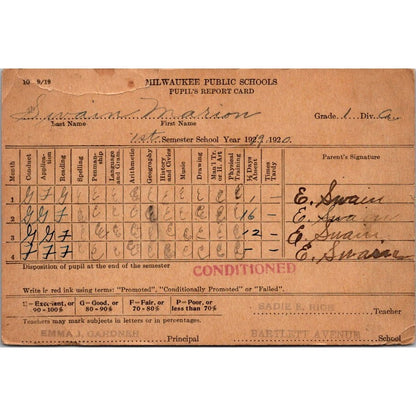 10 9/19 MILWAUKEE PUBLIC SCHOOLS
PUPIL'S REPORT CARD
Swain Marion Grade. 1. Div. Ca
Last Name First Name
1st Semester School Year 1919-1920.
Month Conduct Application Reading Spelling Penmanship Language and Gram. Arithmetic Geography History and Civics Music Drawing Man'l Tr. or H. Art Physical Training ½ Days Absent Times Tardy Parent's Signature
1 G G F 1 - E. Swain
2 G G F 16 - E. Swain
3 G G F 12 - E. Swain
4 F F F - - E. Swain
Disposition of pupil at the end of the semester
CONDITIONED
Write in red ink using terms: "Promoted", "Conditionally Promoted" or "Failed".
E—Excellent, or 90-100% G—Good, or 80-90% F—Fair, or 70-80% P—Poor, or less than 70%
SADIE E. RICE Teacher
Teachers may mark subjects in letters or in numbers.
EMMA J. GARDNER Principal BARTLETT AVENUE School